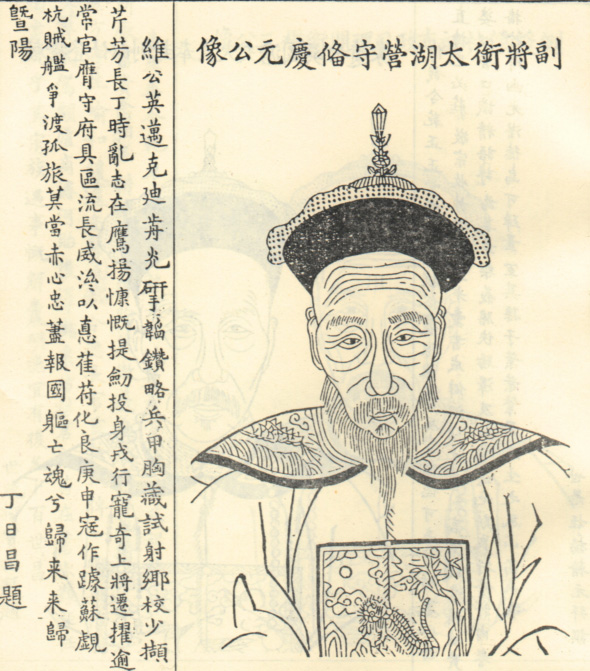 副將銜太湖營守俻慶元公像
維公英邁克廸肯光研韜鑽略兵甲胸藏試射鄉校少擷
芹芳長丁時亂志在鷹揚慷慨提劎投身戎行寵奇上將遷擢逾
常官膺守府具區流長威濟以惪萑苻化良庚申冦作躆蘇覷
杭賊艦爭渡孤旅莫當赤心忠藎報國軀亡魂兮歸来来歸
暨陽
丁日昌題